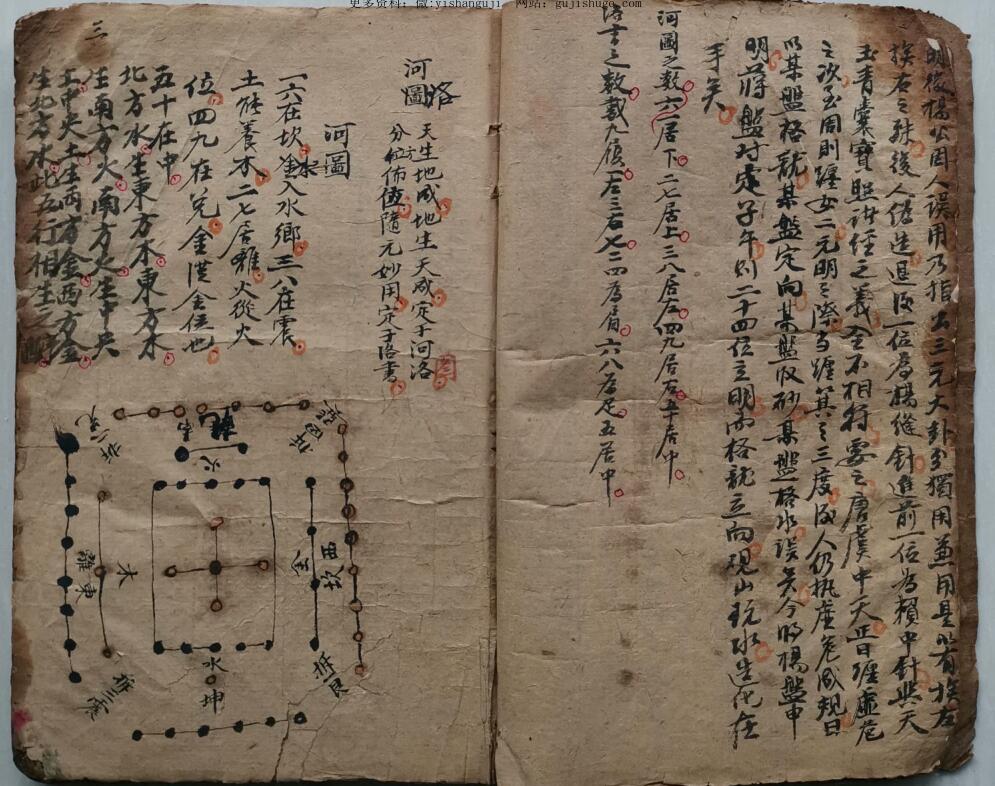 更多资料：微:yishanguji 网站：gujishuge.com
明後楊公因人誤用乃指出三元大卦至獨用兼用是以有挨左
挨右之殊後人偽造退後一位為楊縫針進前一位為賴中針與天
玉青囊寶照諸經之義全不相符要之唐虞中天正日躔虛危
之次至周則躔女二元明之際當躔箕之三度後人仍執虛危成規曰
以某盤格龍某盤定向某盤收砂某盤格水誤矣今將楊盤申
明蔣盤对定子午則二十四位立明而格龍立向砚山玩水造化在
手矣
河圖之数一六居下二七居上三八居左四九居右五十居中
洛書之数戴九履一左三右七二四為肩六八为足五居中
三
河圖洛
天生地成地生天成定于河洛
分位方佈值隨元妙用定于洛書
河圖
一六在坎金入水鄉三八在震
土條養木二七居離火從火
位四九在兌金從金伍也
五十在中
北方水生東方木東方木
生南方火南方火生中央
土中央土生西方金西方金
生北方水此五行相生之
火
木
東
離
金
西
坎
水
坤